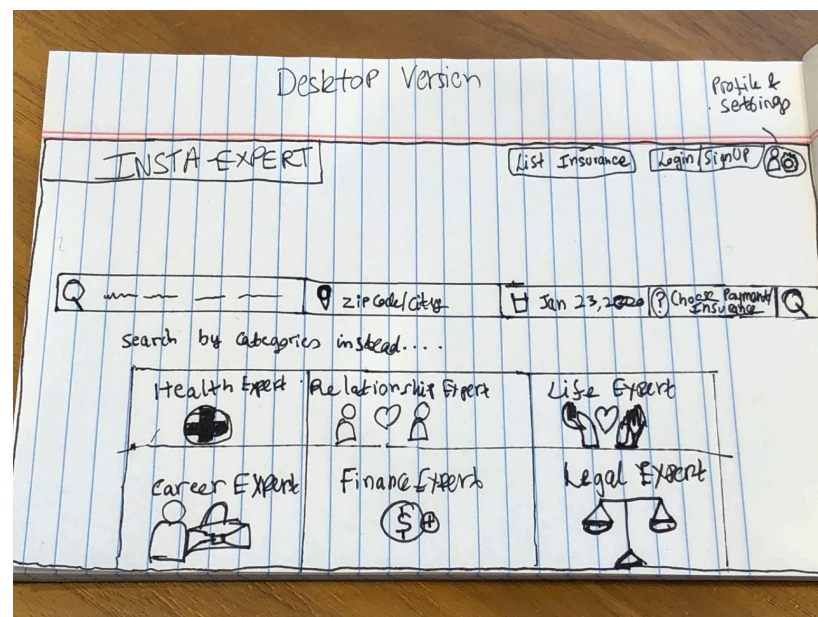 Desktop Version
Profile &
settings
INSTA-EXPERT
List Insurance
Login/SignUP
Zip Code/City
Jan 23, 2020
? Choose Payment/
Insurance
search by categories instead....
Health Expert
Relationship Expert
Life Expert
Career Expert
Finance Expert
Legal Expert
$